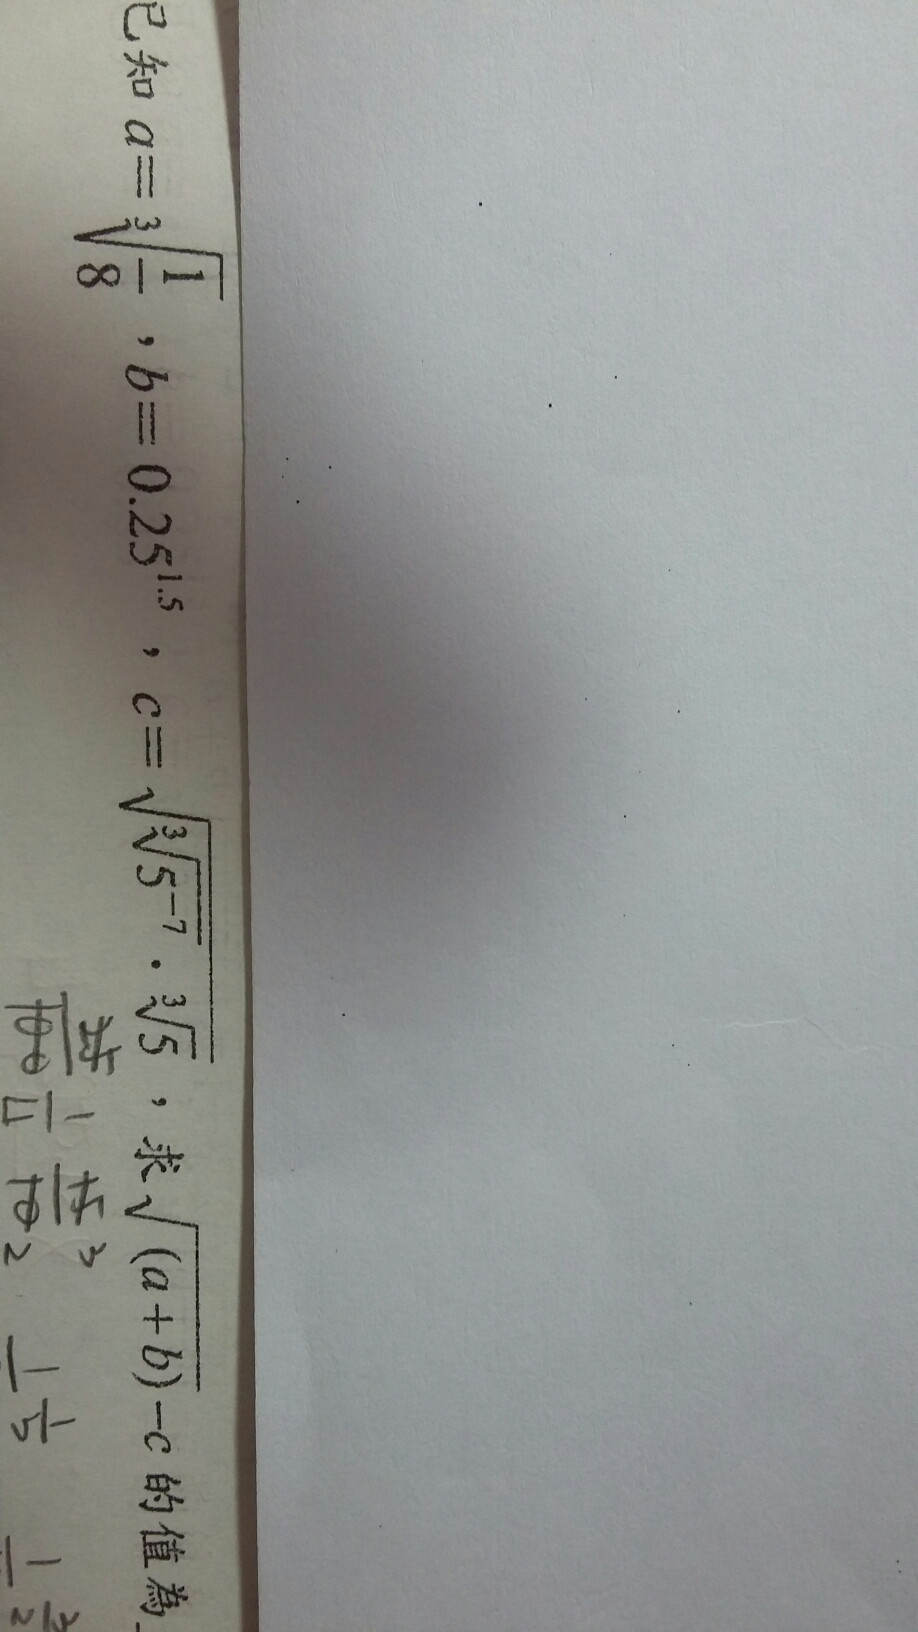 已知 a=∛(1/8)，b=0.25^1.5，c=√(∛(5^-7)·∛5)，求√(a+b)-c 的值為